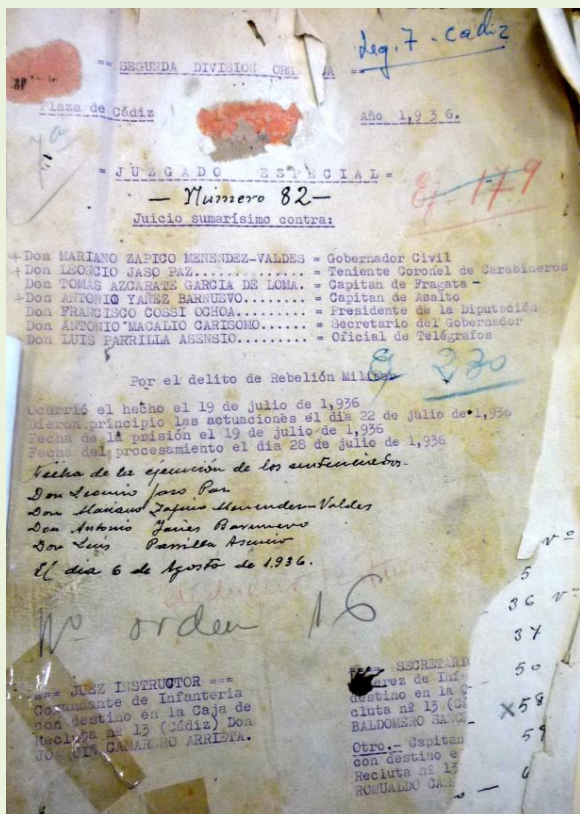 Leg. 7 - Cádiz
== SEGUNDA DIVISION ORG
Plaza de Cádiz
Año 1,936.
= JUZGADO ESPECIAL =
— Número 82 —
Juicio sumarísimo contra:
Ej. 179
+ Don MARIANO ZAPICO MENENDEZ-VALDES = Gobernador Civil
+ Don LEONCIO JASO PAZ.............. = Teniente Coronel de Carabineros
Don TOMAS AZCARATE GARCIA DE LOMA. = Capitan de Fragata -
+ Don ANTONIO YAÑEZ BARNUEVO........ = Capitan de Asalto
Don FRANCISCO COSSI OCHOA......... = Presidente de la Diputación
Don ANTONIO MACALIO CARISOMO...... = Secretario del Gobernador
Don LUIS PARRILLA ASENSIO......... = Oficial de Telégrafos
Por el delito de Rebelión Militar
230
Ocurrió el hecho el 19 de julio de 1,936
Dieron principio las actuaciones el dia 22 de julio de 1,936
Fecha de la prisión el 19 de julio de 1,936
Fecha del procesamiento el dia 28 de julio de 1,936
Fecha de la ejecución de los sentenciados-
Don Leoncio Jaso Paz
Don Mariano Zapico Menendez-Valdes
Don Antonio Yañes Barnuevo
Don Luis Parrilla Asencio
El dia 6 de Agosto de 1.936.
Nº orden 16
=== JUEZ INSTRUCTOR ===
Comandante de Infanteria
con destino en la Caja de
Recluta nº 13 (Cádiz) Don
JOAQUIN CAMARERO ARRIETA.
==== SECRETARI
erez de Inf
destino en la C
cluta nº 13 (Cá
BALDOMERO SANC
Otro.- Capitan
con destino e
Recluta nº 13
ROMUALDO CAR
vº
5
36 vº
37
50
x58
59